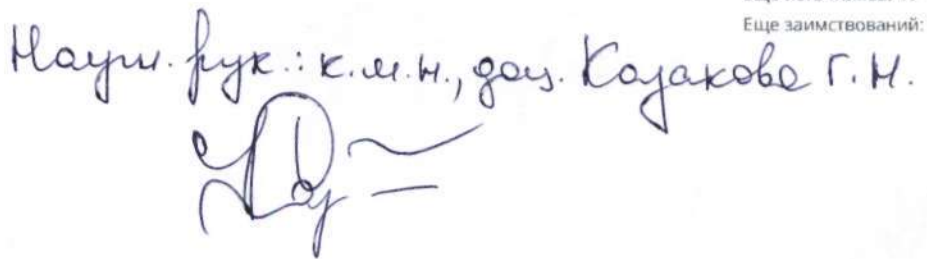 Еще заимствований:
Научн. рук.: к.м.н., доц. Казакова Г.Н.